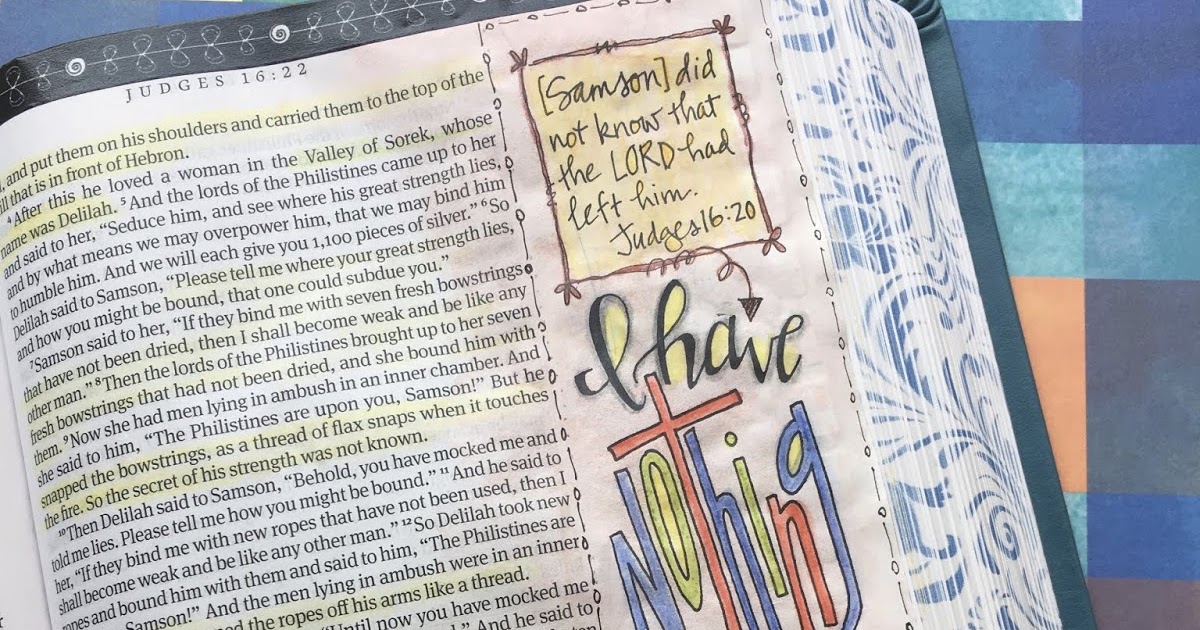 JUDGES 16:22
and put them on his shoulders and carried them to the top of the
that is in front of Hebron.
4 After this he loved a woman in the Valley of Sorek, whose
name was Delilah. 5 And the lords of the Philistines came up to her
and said to her, “Seduce him, and see where his great strength lies,
and by what means we may overpower him, that we may bind him
to humble him. And we will each give you 1,100 pieces of silver.” 6 So
Delilah said to Samson, “Please tell me where your great strength lies,
and how you might be bound, that one could subdue you.”
7 Samson said to her, “If they bind me with seven fresh bowstrings
that have not been dried, then I shall become weak and be like any
other man.” 8 Then the lords of the Philistines brought up to her seven
fresh bowstrings that had not been dried, and she bound him with
them. 9 Now she had men lying in ambush in an inner chamber. And
she said to him, “The Philistines are upon you, Samson!” But he
snapped the bowstrings, as a thread of flax snaps when it touches
the fire. So the secret of his strength was not known.
10 Then Delilah said to Samson, “Behold, you have mocked me and
told me lies. Please tell me how you might be bound.” 11 And he said to
her, “If they bind me with new ropes that have not been used, then I
shall become weak and be like any other man.” 12 So Delilah took new
ropes and bound him with them and said to him, “The Philistines are
Samson!” And the men lying in ambush were in an inner
the ropes off his arms like a thread.
“Until now you have mocked me
And he said to
[Samson] did
not know that
the LORD had
left him.
Judges 16:20
I have
NOthing